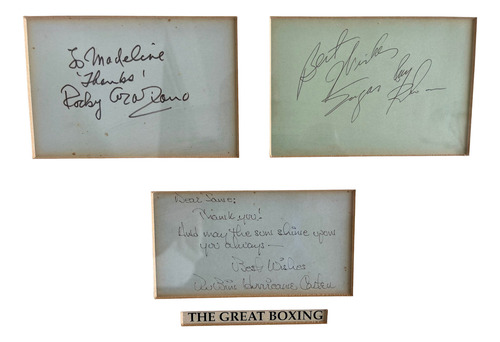 To Madeline
'Thanks'
Rocky Graziano
Best
Wishes
Sugar Ray
Robinson
Dear Jamie:
Thank you!
And may the sun shine upon
you always—
Best Wishes
Rubin Hurricane Carter
THE GREAT BOXING